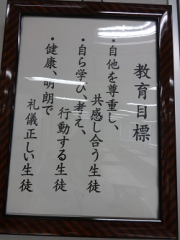 教育目標
・自他を尊重し、
共感し合う生徒
・自ら学び、考え、
行動する生徒
・健康、明朗で
礼儀正しい生徒